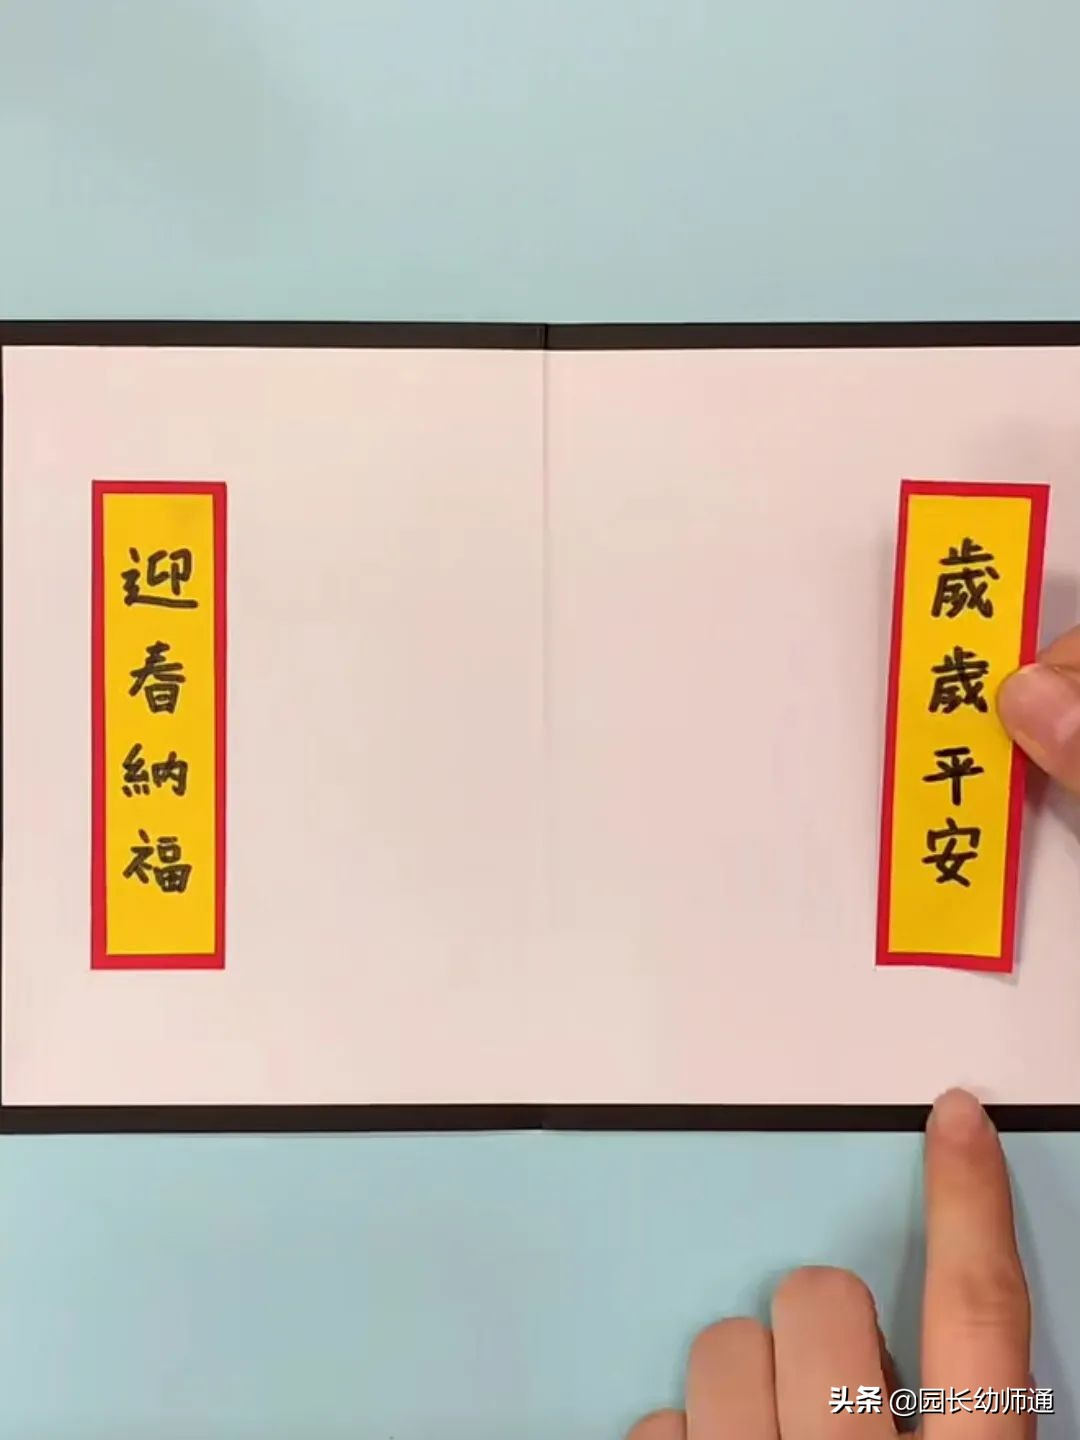 迎春納福
歲歲平安
头条 @园长幼师通